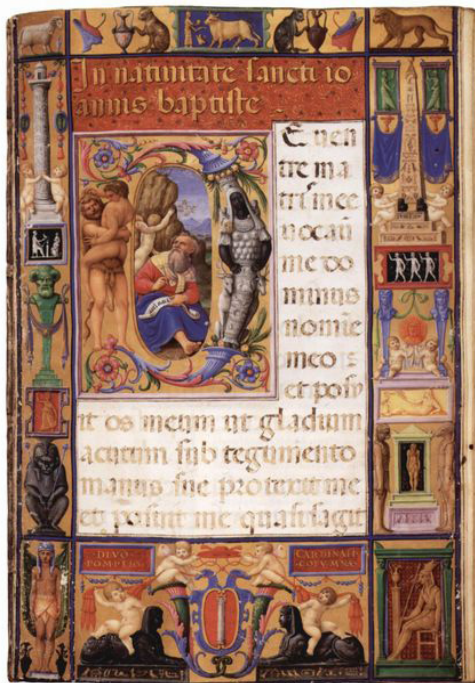 In natiuitate sancti io
annis baptiste
E uen
tre ma
tris mee
uocauit
me do
minus
nomine
meo :
et posu
it os meum ut gladium
acutum sub tegumento
manus sue protexit me
et posuit me quasi sagit
DIVO
POMPEIO
CARDINALI
COLVMNA